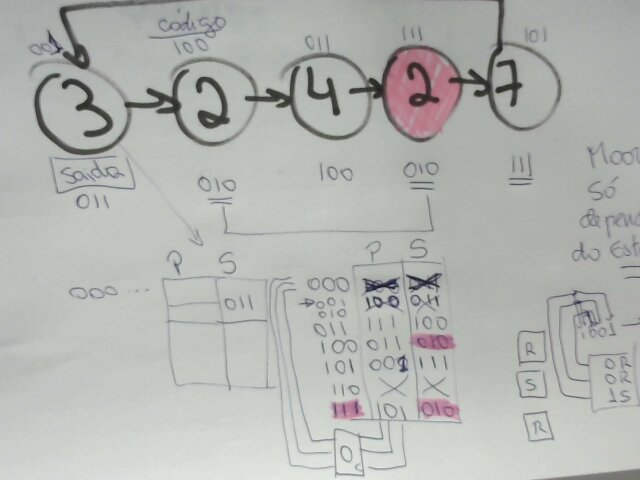 código
001 100 011 111 101
3 2 4 2 7
saída
011 010 100 010 111
Moor
Só
depende
do Est
P S
000 ... 011
P S
000
001 100 011
010
011 111 100
100 011 010
101 001 111
110 X X
111 101 010
0
R
S
R
001
0R
0R
1S